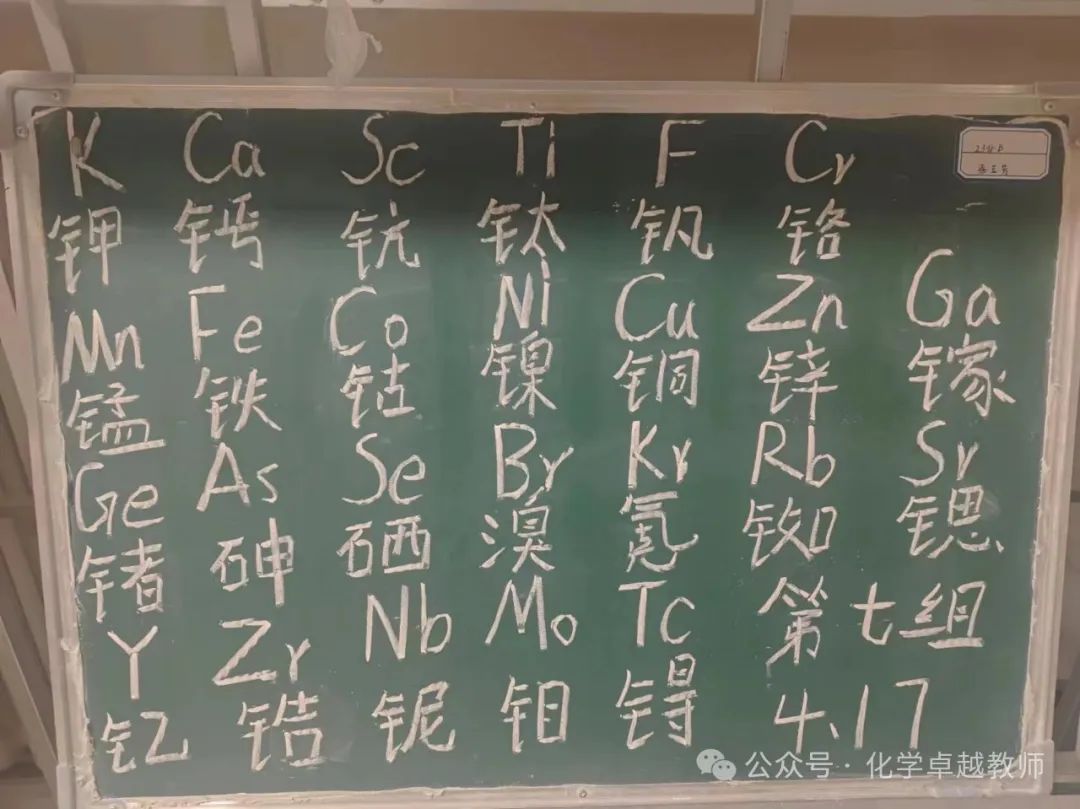 K Ca Sc Ti F Cr
钾 钙 钪 钛 钒 铬
Mn Fe Co Ni Cu Zn Ga
锰 铁 钴 镍 铜 锌 镓
Ge As Se Br Kr Rb Sr
锗 砷 硒 溴 氪 铷 锶
Y Zr Nb Mo Tc 第七组
钇 锆 铌 钼 锝 4.17
公众号·化学卓越教师